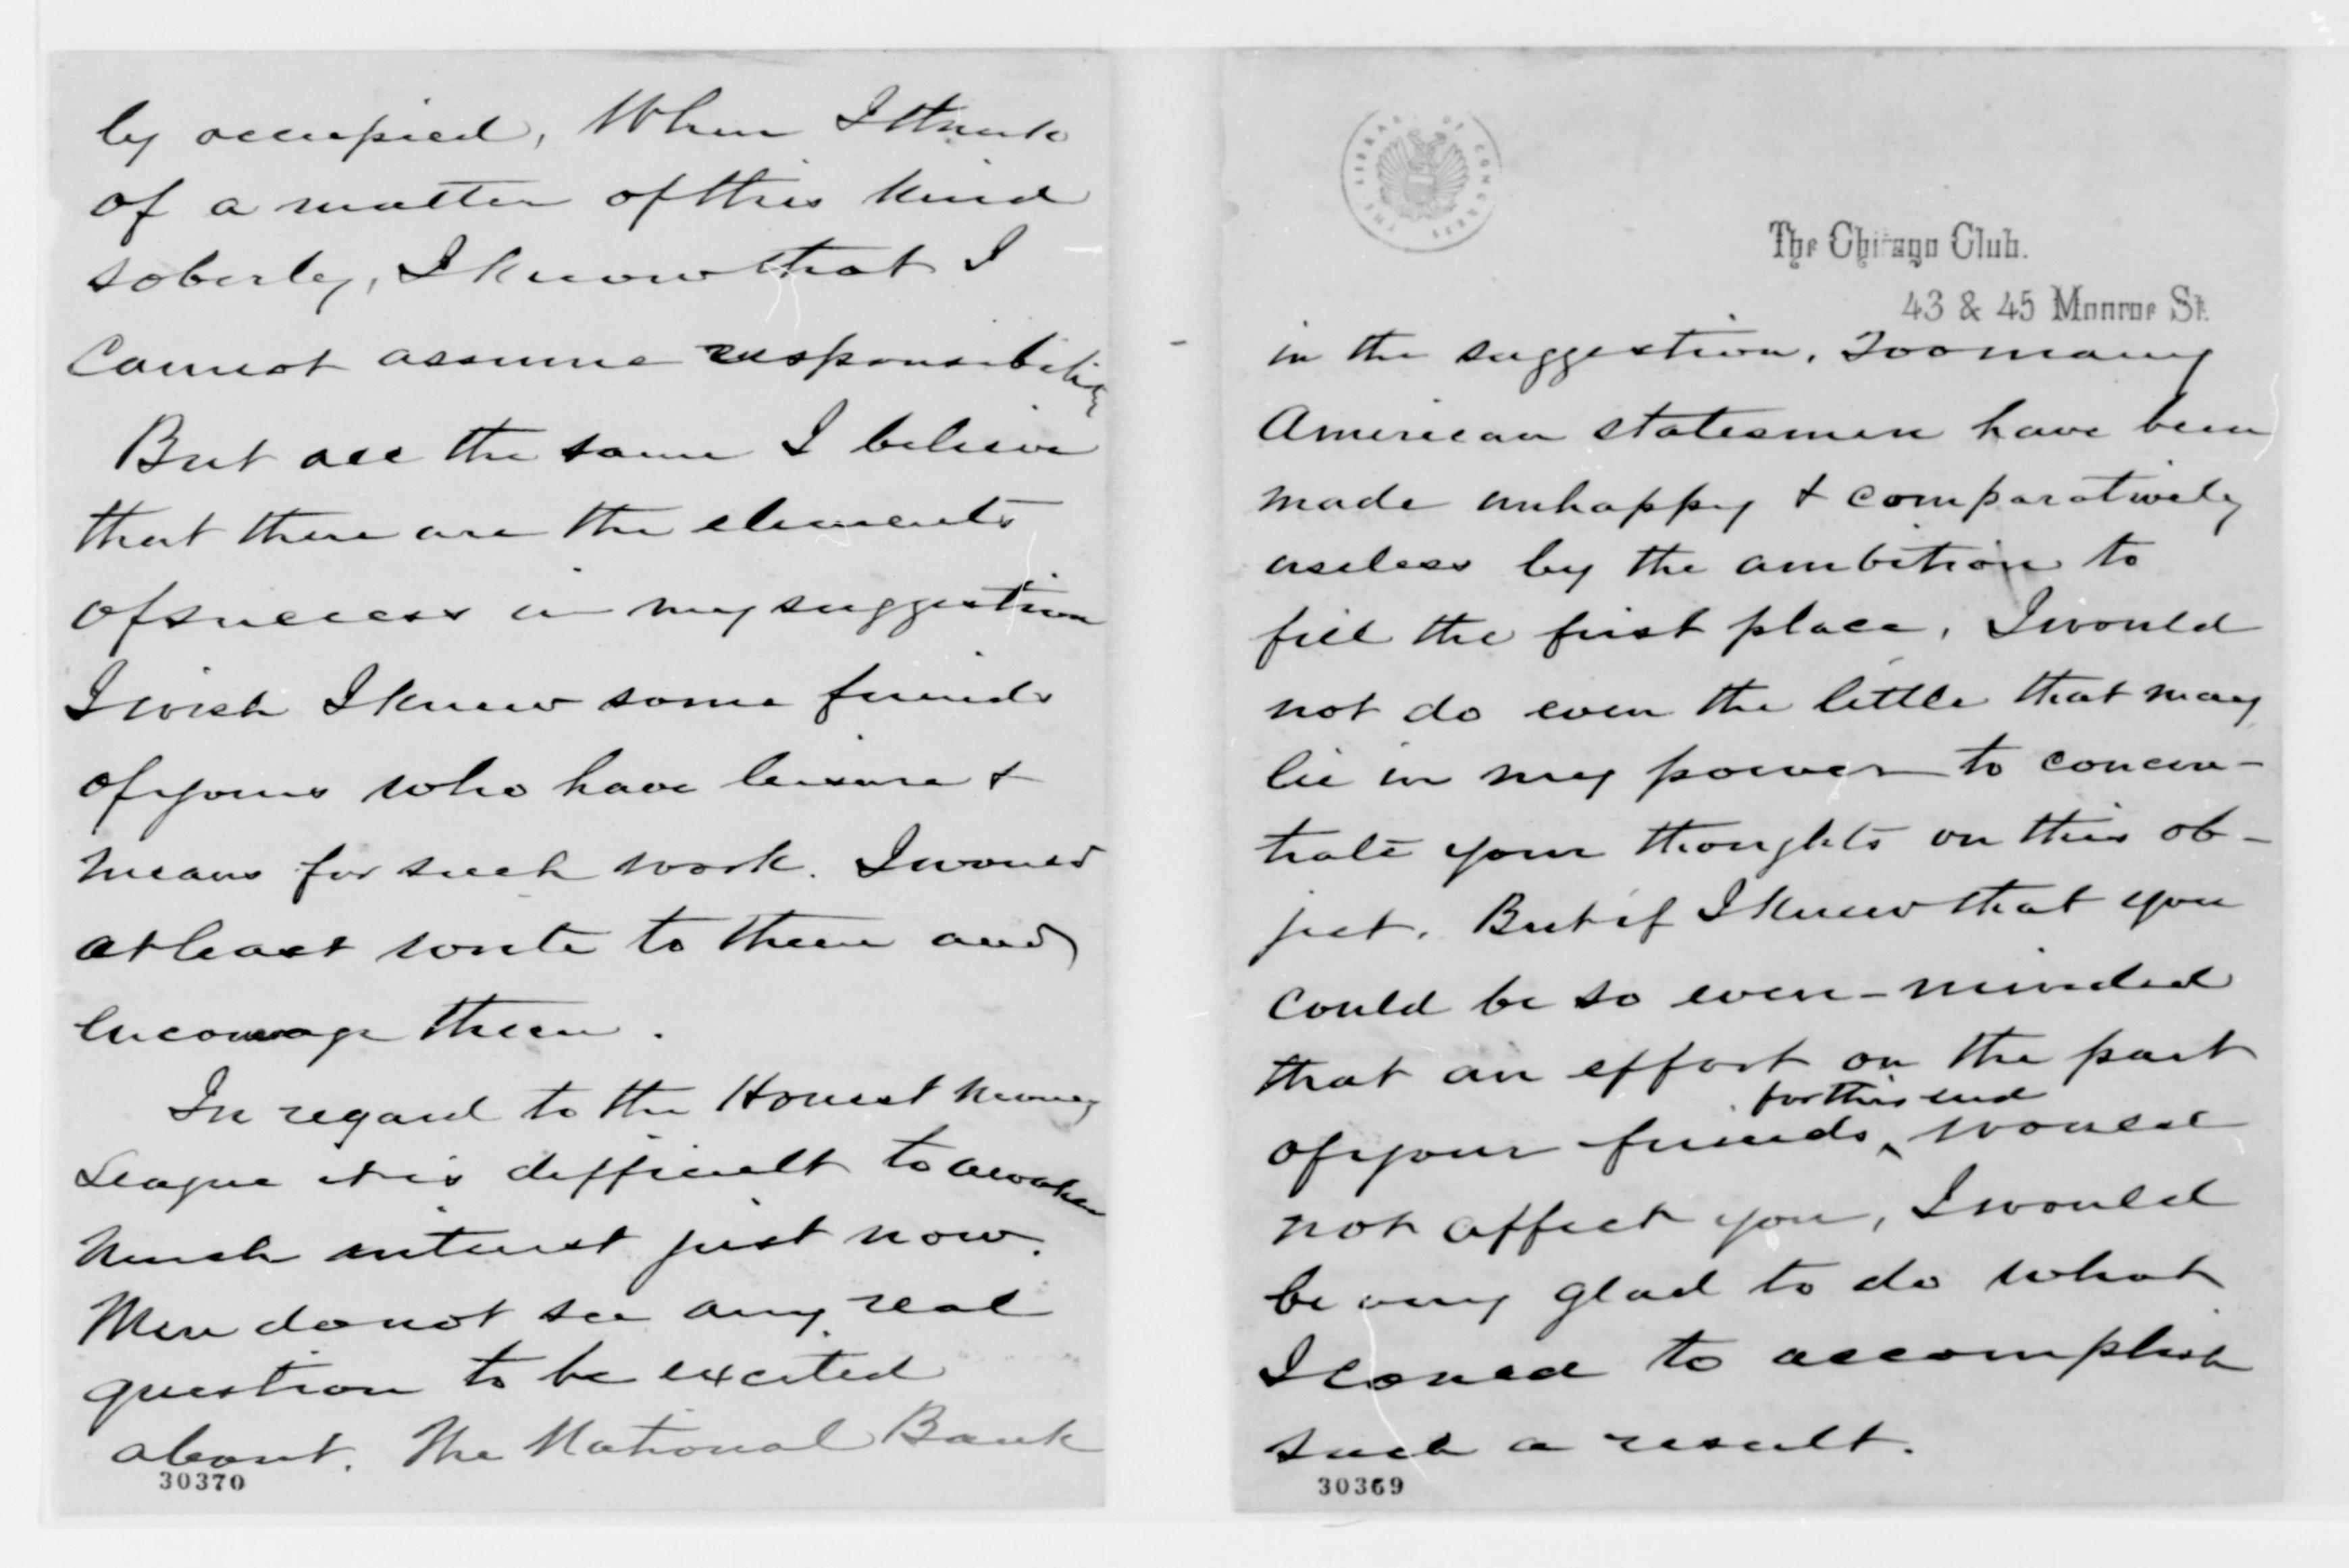 by occupied, When I think
of a matter of this kind
soberly, I know that I
Cannot assume responsibility
But all the same I believe
that there are the elements
of success in my suggestion
I wish I knew some friends
of yours who have leisure &
means for such work. I would
at least write to them and
encourage them.
In regard to the Honest Money
League it is difficult to awaken
much interest just now.
Men do not see any real
question to be excited
about. The National Bank
30370
THE LIBRARY OF CONGRESS
The Chicago Club.
43 & 45 Monroe St.
in the suggestion. Too many
American statesmen have been
made unhappy & comparatively
useless by the ambition to
fill the first place. I would
not do even the little that may
lie in my power to concen-
trate your thoughts on this ob-
ject. But if I knew that you
could be so even-minded
that an effort on the part
for this end
of your friends, would
not affect you, I would
be very glad to do what
I could to accomplish
such a result.
30369